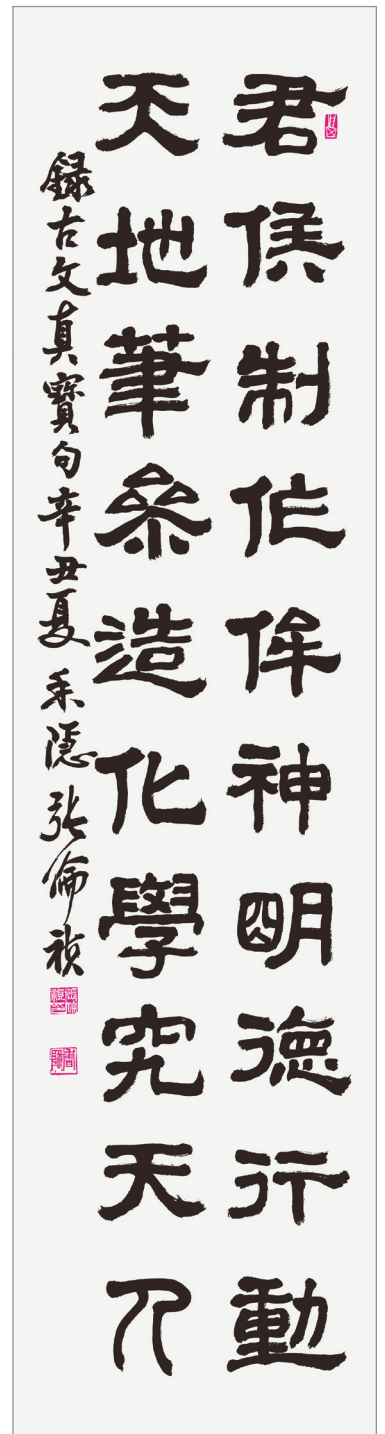 君侯制作侔神明德行動
天地筆參造化學究天人
錄古文真寶句辛丑夏 禾隱 張倫禎